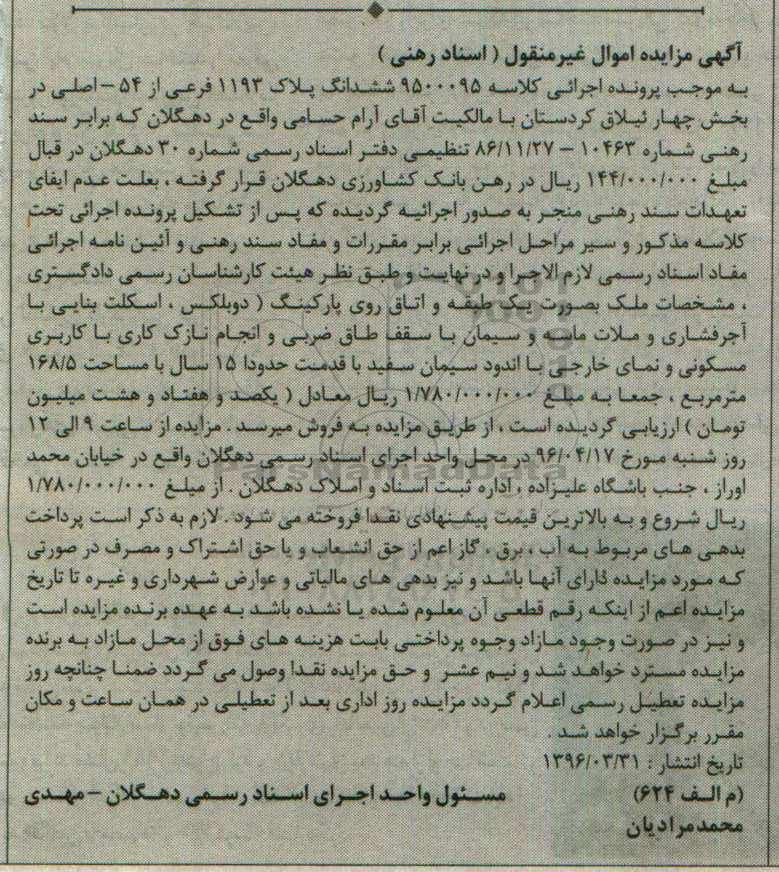 آگهی مزایده اموال غیرمنقول ( اسناد رهنی )
به موجب پرونده اجرائی کلاسه ۹۵۰۰۰۹۵ ششدانگ پلاک ۱۱۹۳ فرعی از ۵۴ – اصلی در
بخش چهار ئیلاق کردستان با مالکیت آقای آرام حسامی واقع در دهگلان که برابر سند
رهنی شماره ۱۰۴۶۳ – ۸۶/۱۱/۲۷ تنظیمی دفتر اسناد رسمی شماره ۳۰ دهگلان در قبال
مبلغ ۱۴۴/۰۰۰/۰۰۰ ریال در رهن بانک کشاورزی دهگلان قرار گرفته ، بعلت عدم ایفای
تعهدات سند رهنی منجر به صدور اجرائیه گردیده که پس از تشکیل پرونده اجرائی تحت
کلاسه مذکور و سیر مراحل اجرائی برابر مقررات و مفاد سند رهنی و آئین نامه اجرائی
مفاد اسناد رسمی لازم الاجرا و در نهایت و طبق نظر هیئت کارشناسان رسمی دادگستری
، مشخصات ملک بصورت یک طبقه و اتاق روی پارکینگ ( دوبلکس ، اسکلت بنایی با
آجرفشاری و ملات ماسه و سیمان با سقف طاق ضربی و انجام نازک کاری با کاربری
مسکونی و نمای خارجی با اندود سیمان سفید با قدمت حدودا ۱۵ سال با مساحت ۱۶۸/۵
مترمربع ، جمعا به مبلغ ۱/۷۸۰/۰۰۰/۰۰۰ ریال معادل ( یکصد و هفتاد و هشت میلیون
تومان ) ارزیابی گردیده است ، از طریق مزایده به فروش میرسد . مزایده از ساعت ۹ الی ۱۲
روز شنبه مورخ ۹۶/۰۴/۱۷ در محل واحد اجرای اسناد رسمی دهگلان واقع در خیابان محمد
اوراز ، جنب باشگاه علیزاده ، اداره ثبت اسناد و املاک دهگلان . از مبلغ ۱/۷۸۰/۰۰۰/۰۰۰
ریال شروع و به بالاترین قیمت پیشنهادی نقدا فروخته می شود . لازم به ذکر است پرداخت
بدهی های مربوط به آب ، برق ، گاز اعم از حق انشعاب و یا حق اشتراک و مصرف در صورتی
که مورد مزایده دارای آنها باشد و نیز بدهی های مالیاتی و عوارض شهرداری و غیره تا تاریخ
مزایده اعم از اینکه رقم قطعی آن معلوم شده یا نشده باشد به عهده برنده مزایده است
و نیز در صورت وجود مازاد وجوه پرداختی بابت هزینه های فوق از محل مازاد به برنده
مزایده مسترد خواهد شد و نیم عشر و حق مزایده نقدا وصول می گردد ضمنا چنانچه روز
مزایده تعطیل رسمی اعلام گردد مزایده روز اداری بعد از تعطیلی در همان ساعت و مکان
مقرر برگزار خواهد شد .
تاریخ انتشار : ۱۳۹۶/۰۳/۳۱
(م الف ۶۲۴) مسئول واحد اجرای اسناد رسمی دهگلان – مهدی
محمدمرادیان
ParsNamadData